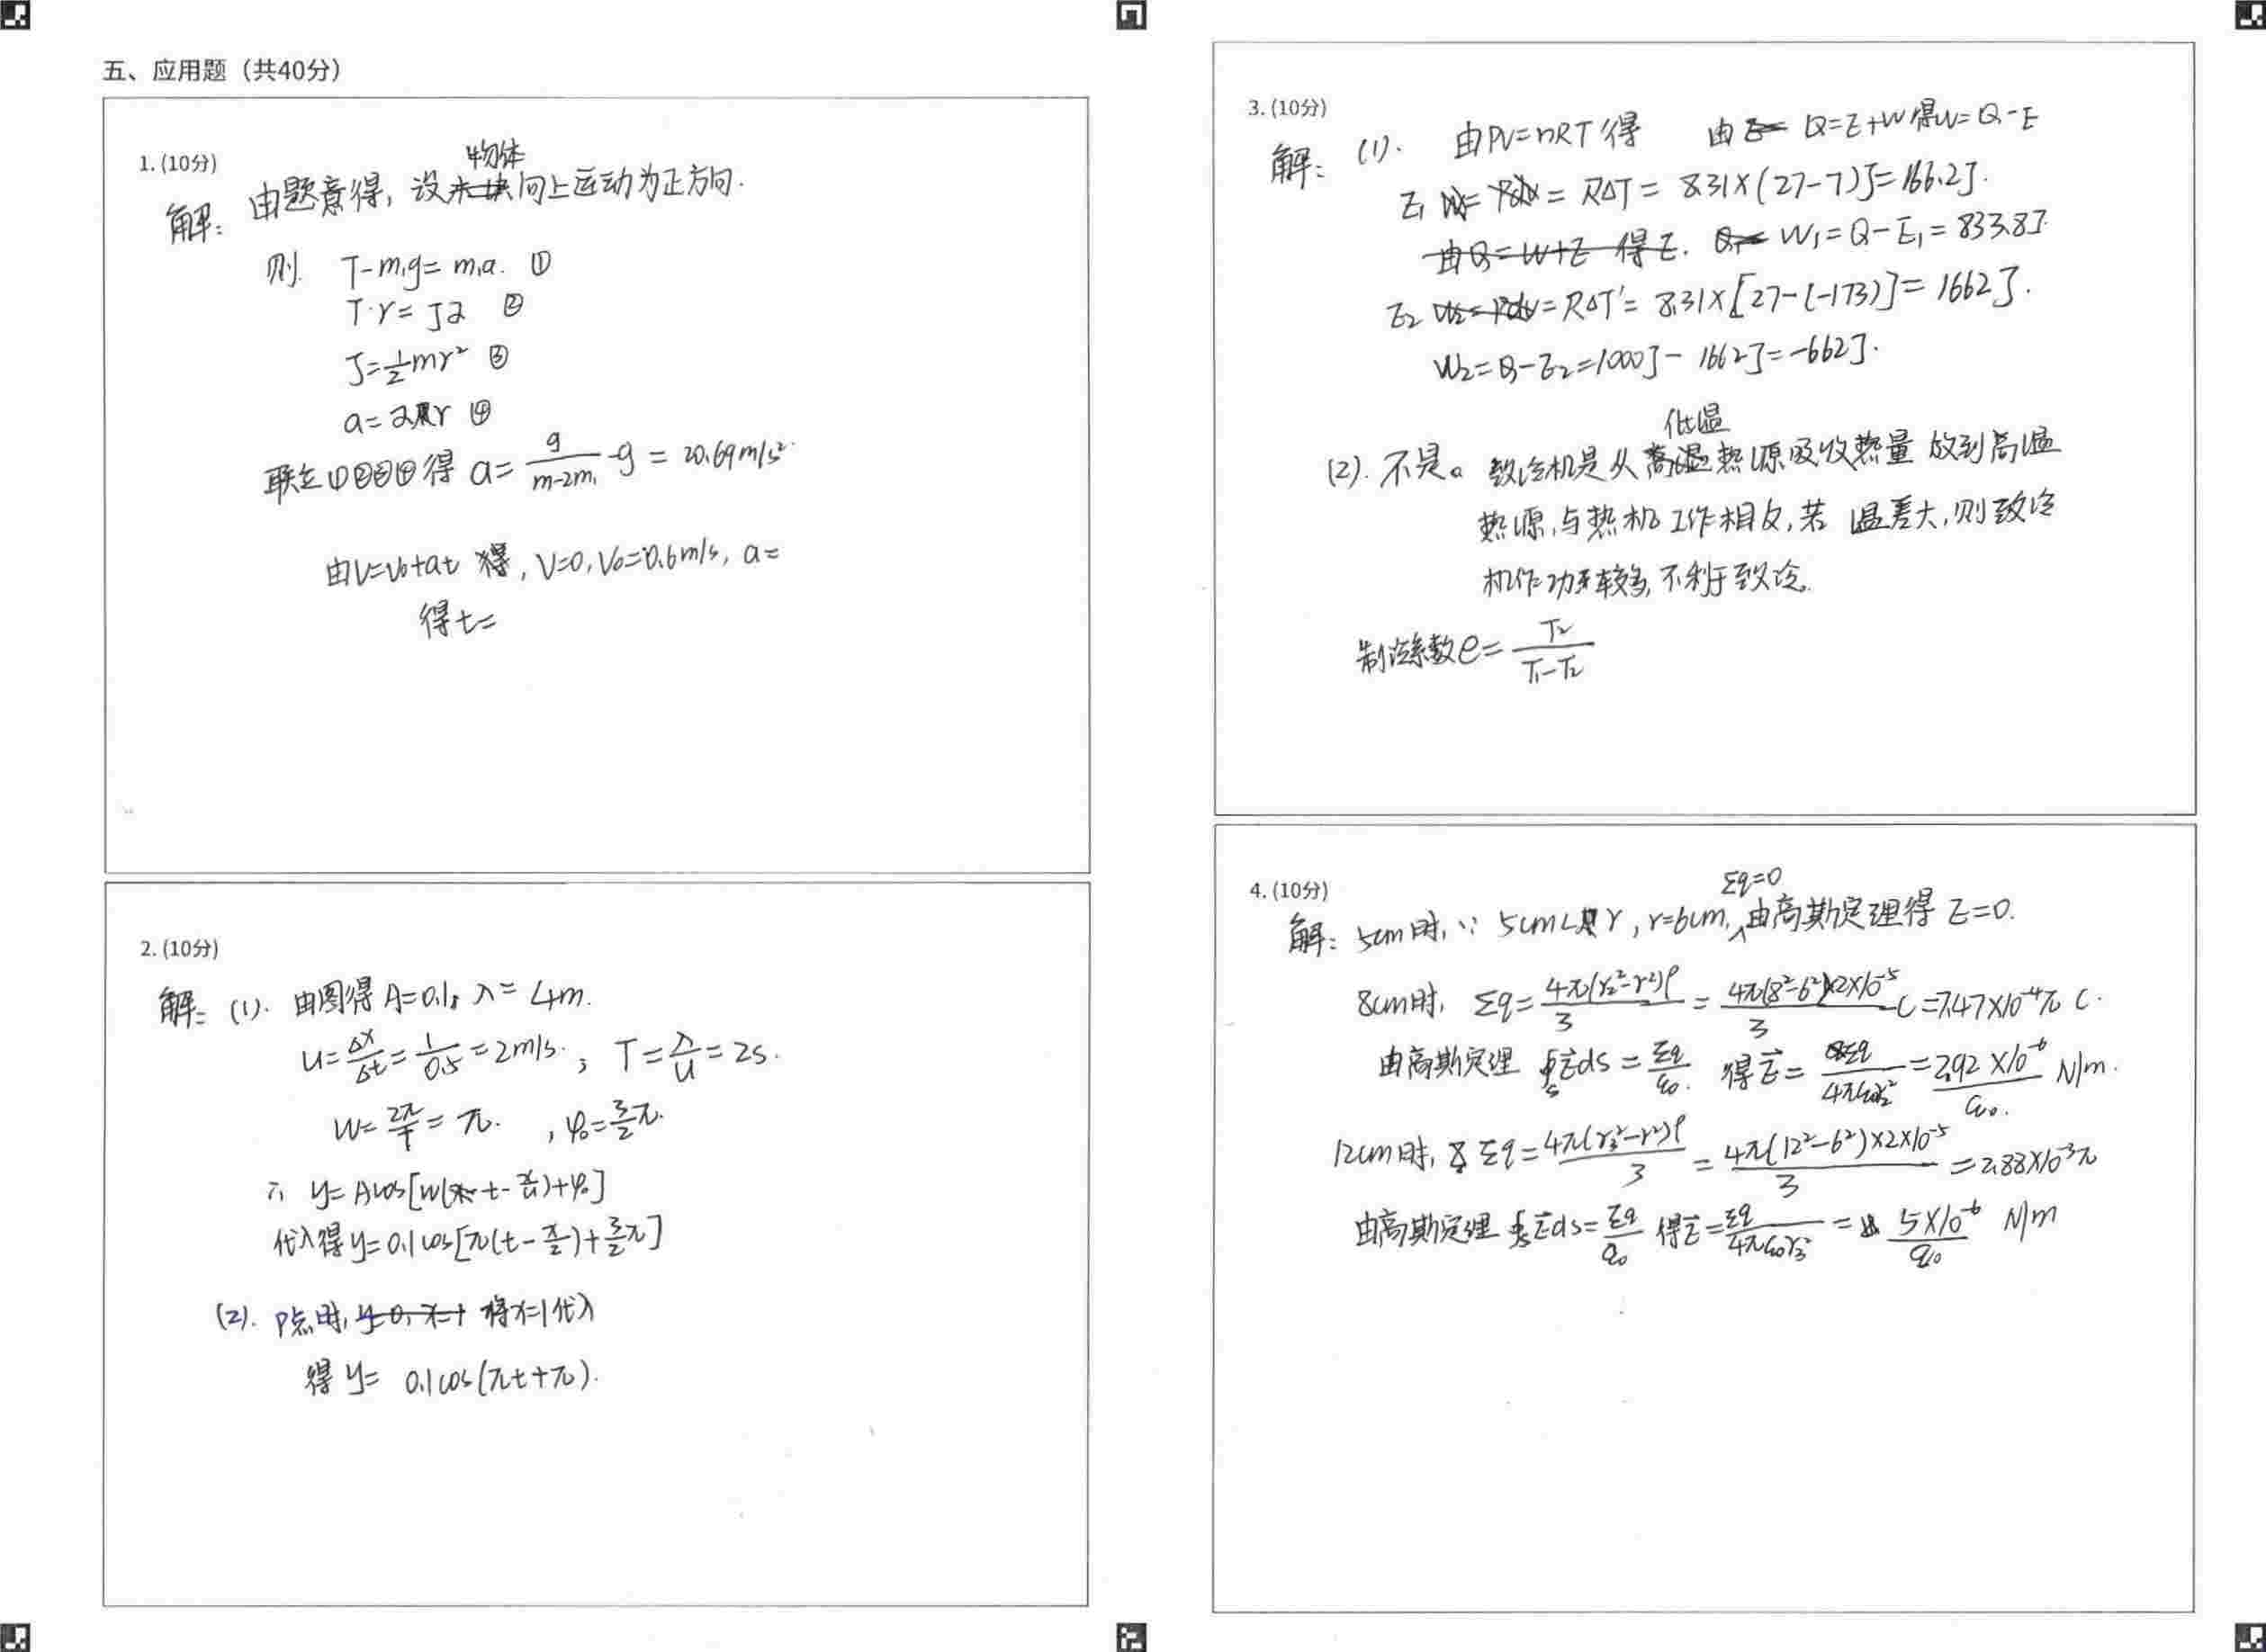 五、应用题（共40分）
1. (10分)
解：由题意得，设物体向上运动为正方向.
则 T-m₁g=m₁a. ①
T·r=Jα ②
J=½mr² ③
a=αr ④
联立①②③④得 a=g/(m-2m₁)·g=20.69m/s².
由V=V₀+at 得，V=0, V₀=0.6m/s, a=
得t=
2. (10分)
解：(1). 由图得 A=0.1, λ=4m.
u=Δx/Δt=1/0.5=2m/s. ; T=λ/u=2s.
w=2π/T=π. , φ₀=3/2π.
∴ y=Acos[w(t-x/u)+φ₀]
代入得y=0.1cos[π(t-x/2)+3/2π]
(2). P点时, 将x=1代入
得 y= 0.1cos(πt+π).
3. (10分)
解：(1). 由PV=nRT得 由 Q=E+W得W=Q-E
E₁ = RΔT = 8.31×(27-7)J=166.2J.
W₁=Q-E₁=833.8J.
E₂ =RΔT'=8.31×[27-(-173)]=1662J.
W₂=Q-E₂=1000J-1662J=-662J.
(2). 不是。致冷机是从低温热源吸收热量放到高温
热源,与热机工作相反,若 温差大,则致冷
机作功较多,不利于致冷.
制冷系数e=T₂/(T₁-T₂)
4. (10分)
解：5cm时, ∵ 5cm<r, r=6cm, Σq=0 由高斯定理得 E=0.
8cm时, Σq=4π(r₂²-r²)ρ/3=4π(8²-6²)×2×10⁻⁵/3 C=7.47×10⁻⁴π C.
由高斯定理 ∮ₛE⃗ds=Σq/ε₀. 得E⃗=Σq/4πε₀r₂²=2.92×10⁻⁶/ε₀. N/m.
12cm时, Σq=4π(r₃²-r²)ρ/3=4π(12²-6²)×2×10⁻⁵/3=2.88×10⁻³π
由高斯定理 ∮ₛE⃗ds=Σq/ε₀ 得E⃗=Σq/4πε₀r₃²=5×10⁻⁶/ε₀ N/m